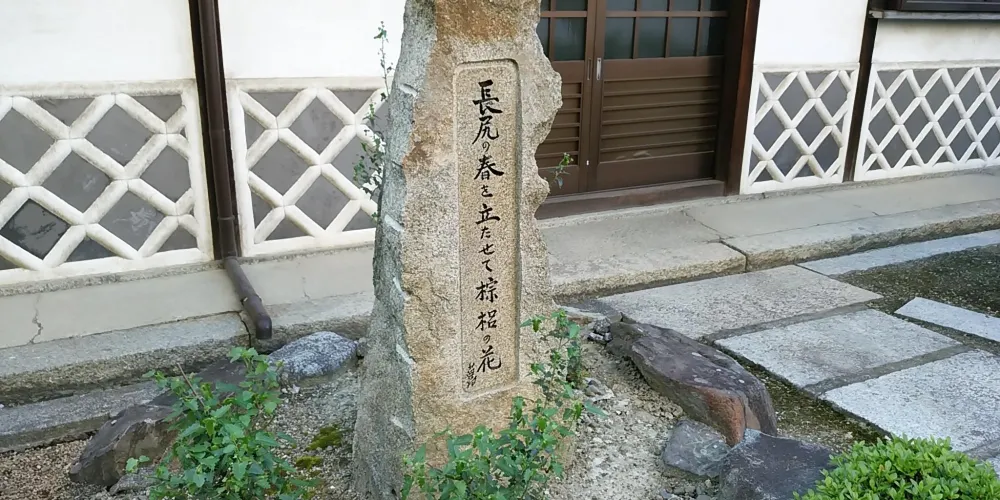 長尻の春を立たせて棕梠の花